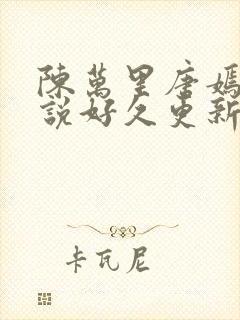 陳萬里唐嫣
說好久更新
卡瓦尼